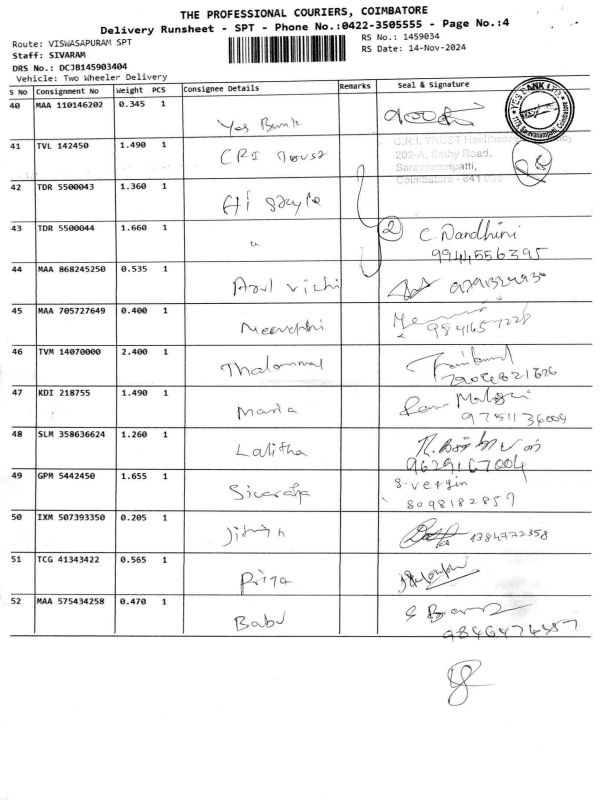 THE PROFESSIONAL COURIERS, COIMBATORE
Delivery Runsheet - SPT - Phone No.:0422-3505555 - Page No.:4
Route: VISWASAPURAM SPT
RS No.: 1459034
Staff: SIVARAM
RS Date: 14-Nov-2024
DRS No.: DCJB145903404
Vehicle: Two Wheeler Delivery
S No Consignment No Weight PCS Consignee Details Remarks Seal & Signature
40 MAA 110146202 0.345 1 Yes Bank
YES BANK LTD
Saravanampatti, Coimbatore
41 TVL 142450 1.490 1 CRI Trust
C.R.I. TRUST Healthcare
202-A, Sathy Road,
Saravanampatti,
Coimbatore - 641 035
42 TDR 5500043 1.360 1
43 TDR 5500044 1.660 1 " 2 C. Nandhini
9944556395
44 MAA 868245250 0.535 1
45 MAA 705727649 0.400 1
9841657228
46 TVM 14070000 2.400 1
47 KDI 218755 1.490 1 Maria
9751136004
48 SLM 358636624 1.260 1 Lalitha
9629167004
49 GPM 5442450 1.655 1 S. vergin
8098182857
50 IXM 507393350 0.205 1
51 TCG 41343422 0.565 1 Priya
52 MAA 575434258 0.470 1 Babu